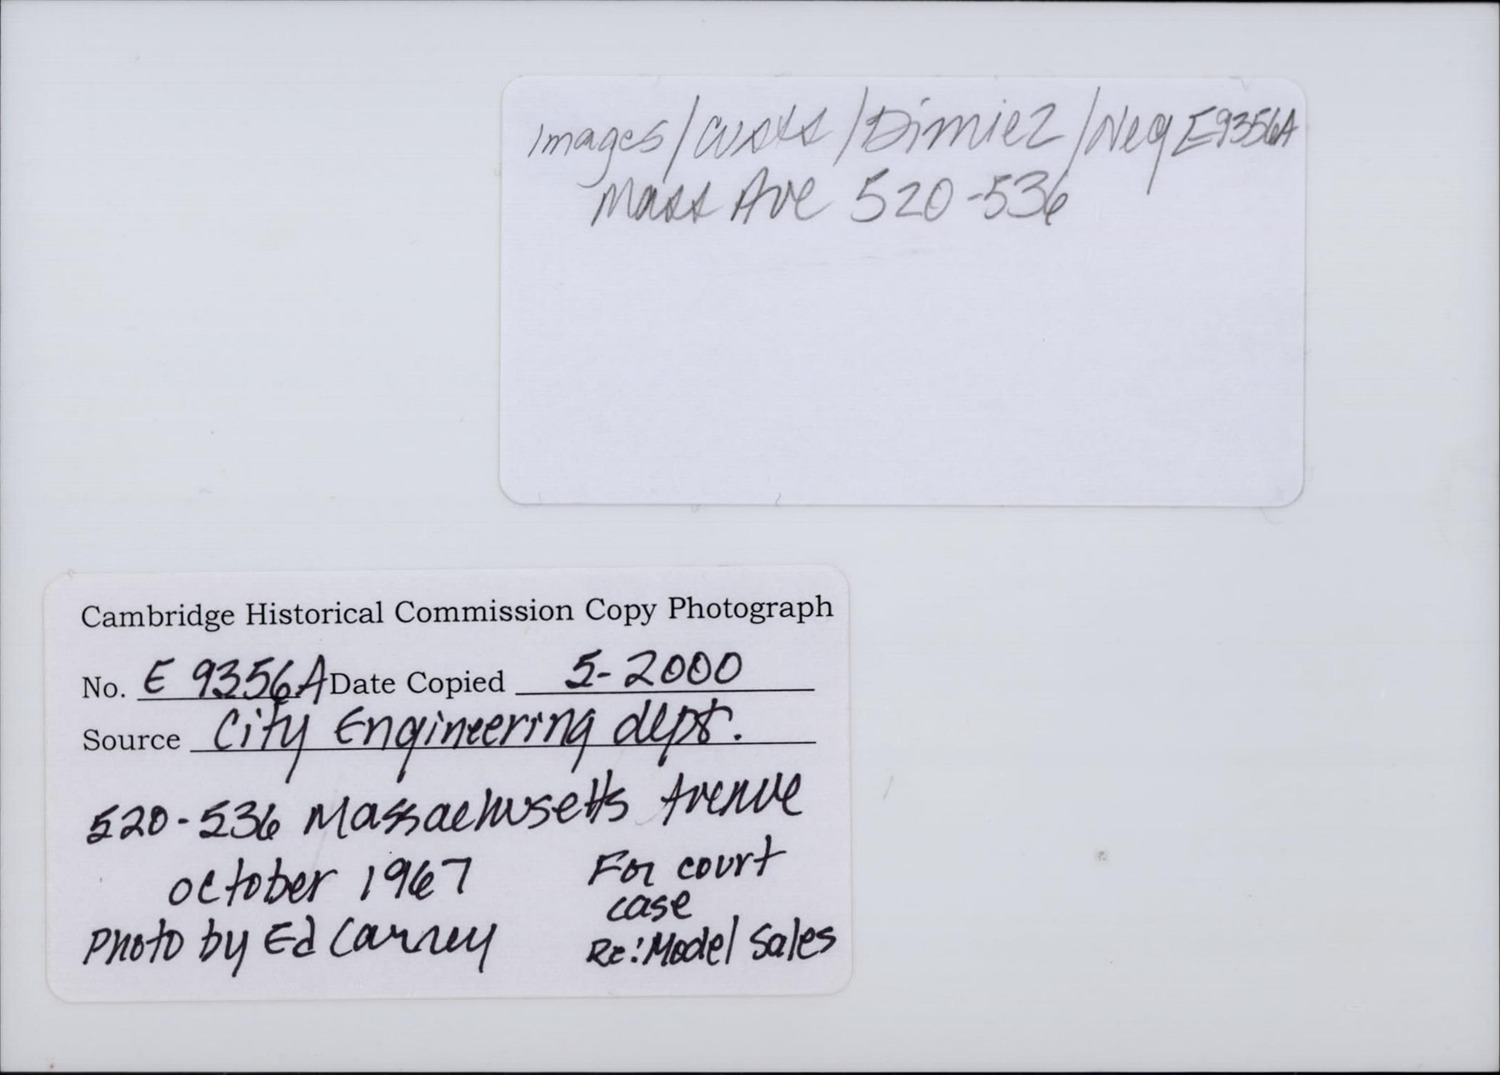 Images/Custs/Dimiez/Neg E9356A
Mass Ave 520-536
Cambridge Historical Commission Copy Photograph
No. E 9356A Date Copied 5-2000
Source City Engineering dept.
520-536 Massachusetts Avenue
October 1967
For court
case
Photo by Ed Carney
Re: Model Sales